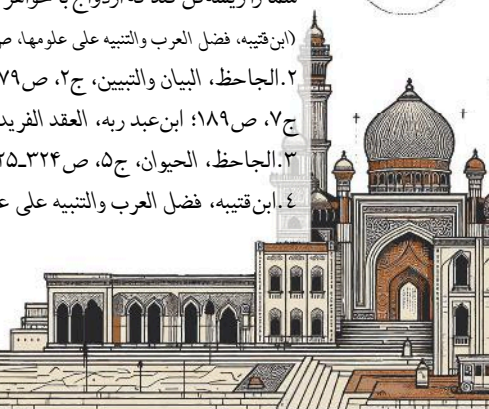 شما را ریشه‌کن کند که ازدواج با خواهر
(ابن‌قتیبه، فضل العرب والتنبیه علی علومها، ص
۲.الجاحظ، البیان والتبیین، ج۲، ص۷۹
ج۷، ص۱۸۹؛ ابن‌عبد ربه، العقد الفرید
۳.الجاحظ، الحیوان، ج۵، ص۳۲۴ـ۲۵
٤.ابن‌قتیبه، فضل العرب والتنبیه علی عـ